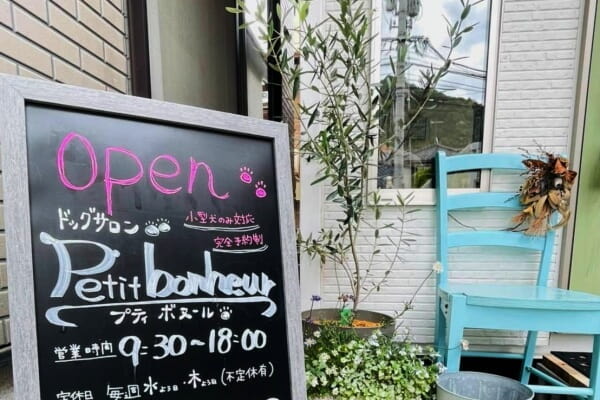 open
ドッグサロン
小型犬のみ対応
完全予約制
Petit bonheur
プティ ボヌール
営業時間 9:30~18:00
定休日 毎週水ようび・木ようび(不定休有)